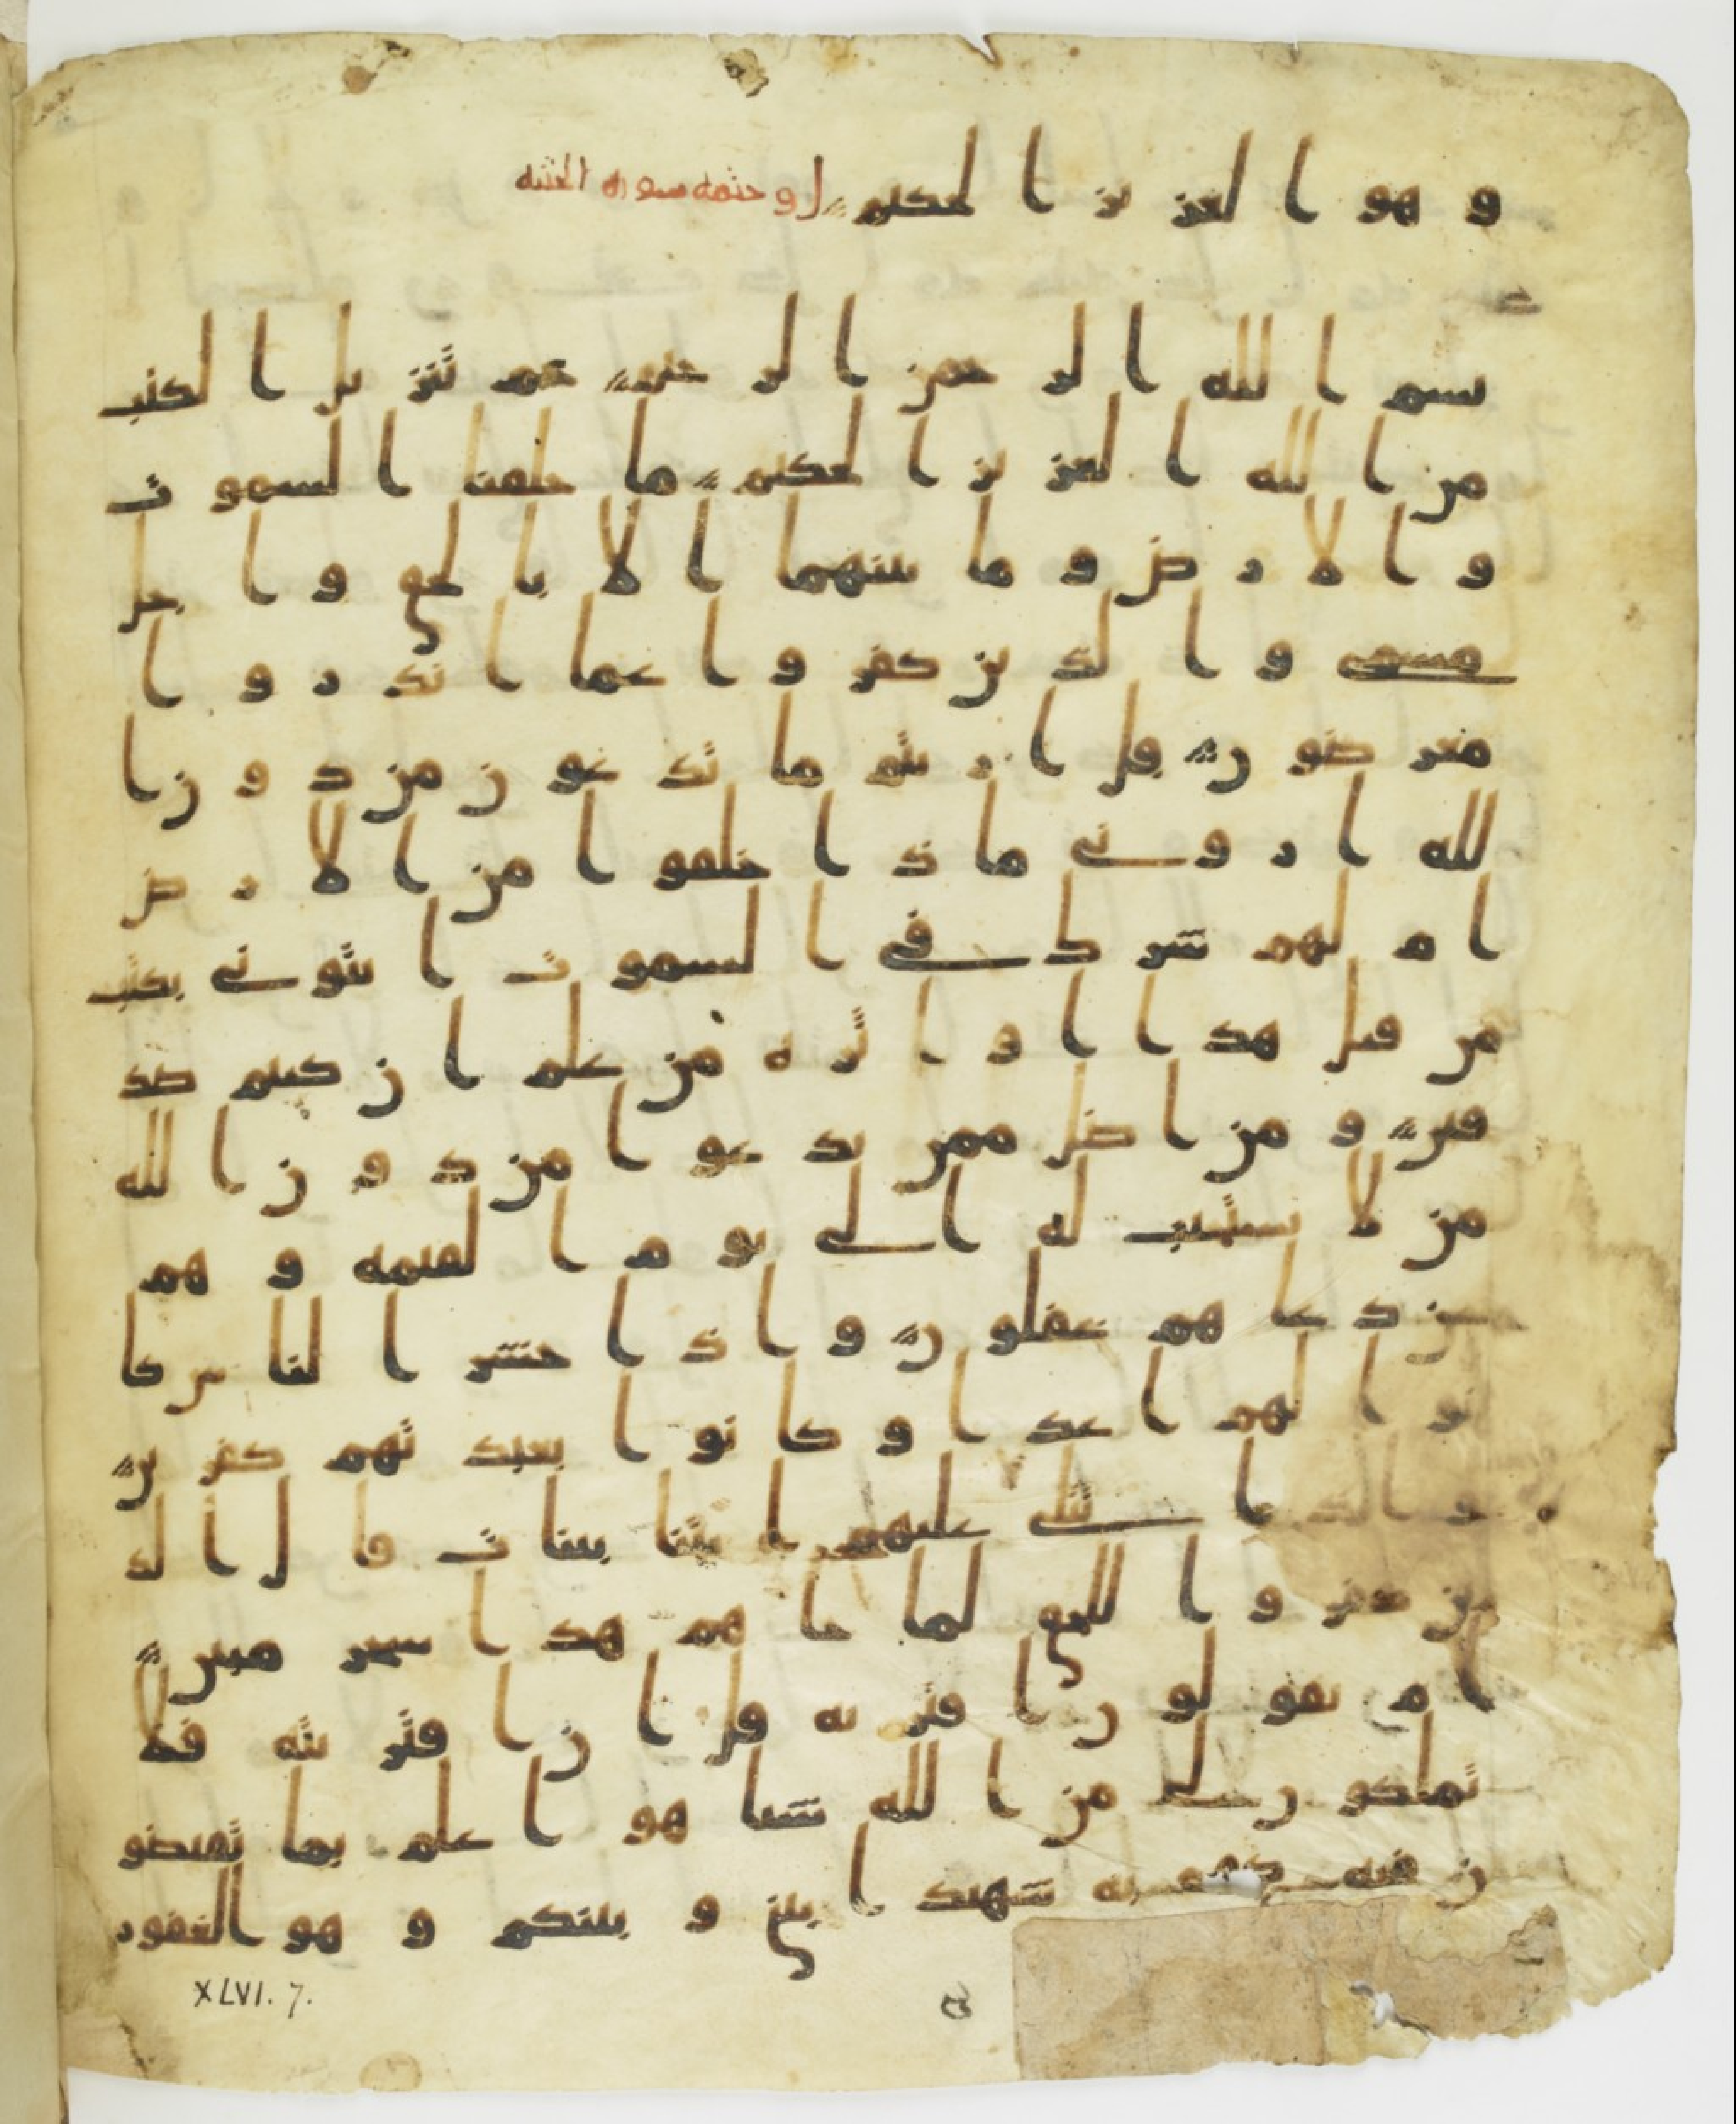 وهو العزيز الحكيم وختمه سوره الجثيه
بسم الله الرحمن الرحيم حم تنزيل الكتب
من الله العزيز الحكيم ما خلقنا السموت
والارض وما بينهما الا بالحق واجل
مسمى والذين كفروا عما انذروا
معرضون قل اريتم ما تدعون من دون ا
لله اروني ماذا خلقوا من الارض
ام لهم شرك في السموت ايتوني بكتب
من قبل هذا او اثره من علم ان كنتم صد
قين ومن اضل ممن يدعوا من دون الله
من لا يستجيب له الى يوم القيمه وهم
عن دعاهم غفلون واذا حشر الناس كا
نوا لهم اعدا وكانوا بعبدتهم كفرين
واذا تتلى عليهم ايتنا بينات قال الذ
ين كفروا للحق لما جاهم هذا سحر مبين
ام يقولون افتريه قل ان افتريته فلا
تملكون لي من الله شيا هو اعلم بما تفيضو
ن فيه كفى به شهيدا بيني وبينكم وهو الغفور
XLVI. 7.